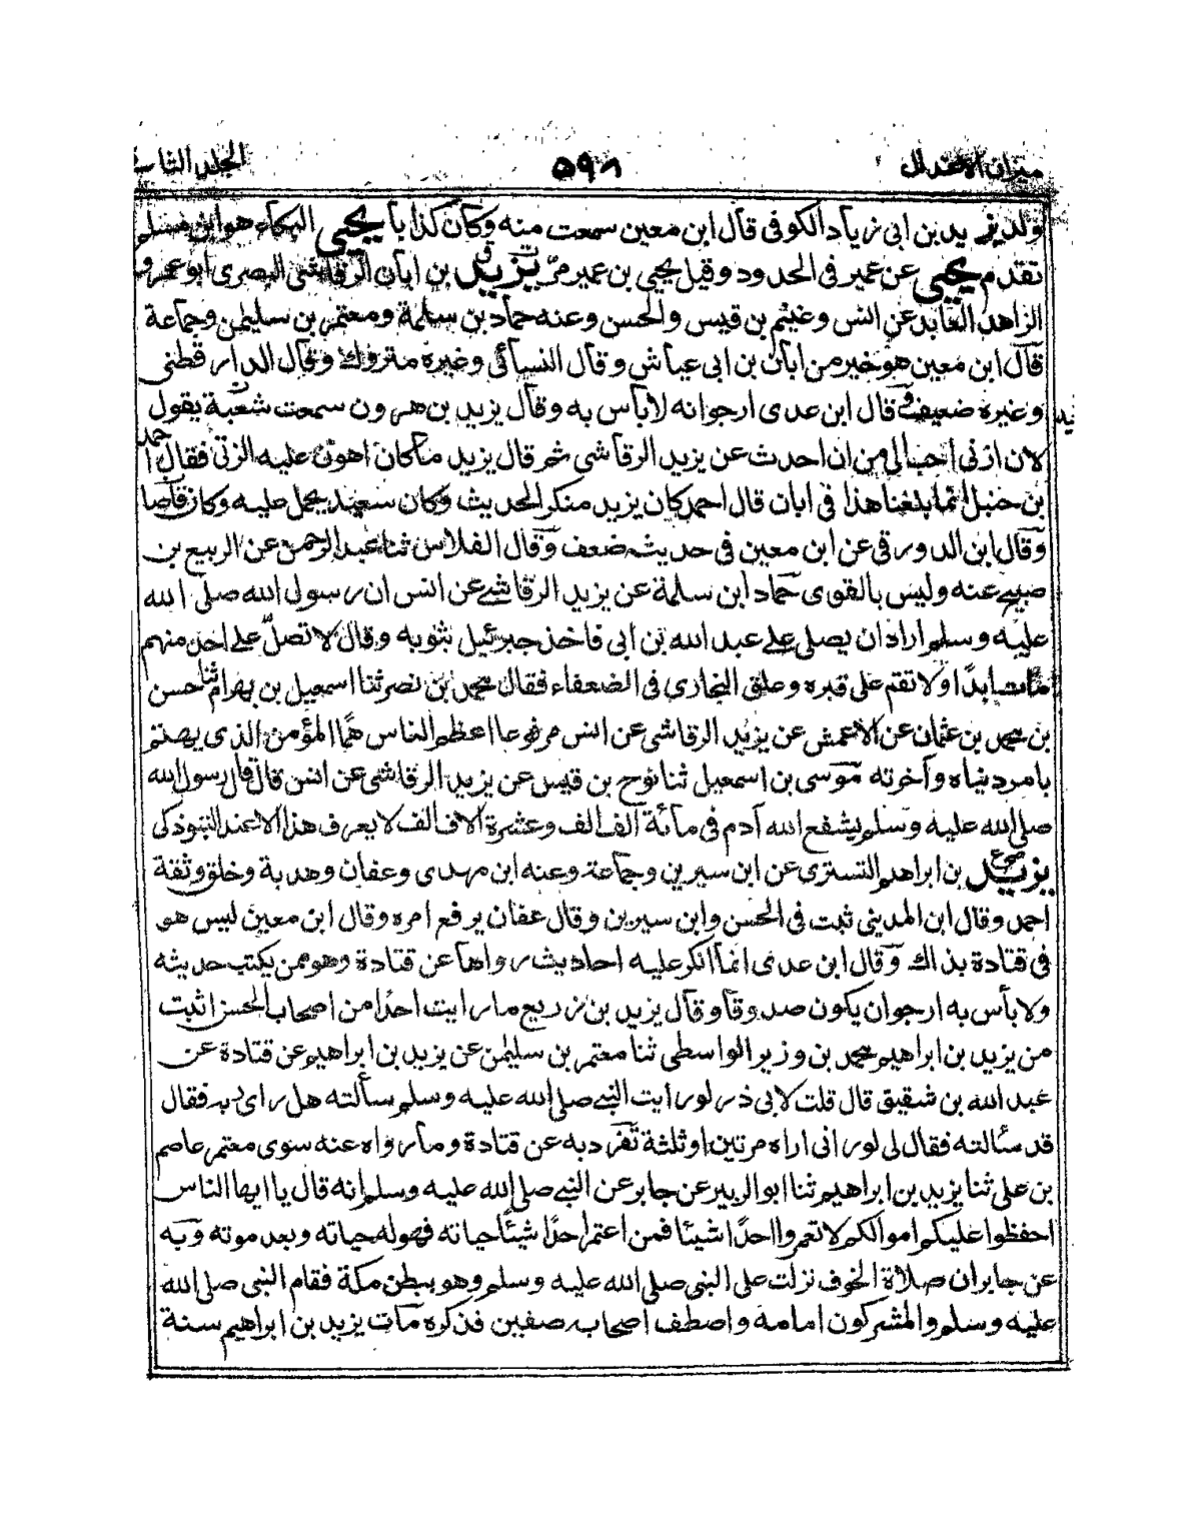 ميزان الاعتدال
۵۹۸
الجلد الثالث
ولد يزيد بن ابى زياد الكوفى قال ابن معين سمعت منه وكان كذابا يحيى البكاء هو ابن مسلم
تقدم يحيى عن عمير فى الحدود وقيل يحيى بن عمير مرّ يزيد بن ابان الرقاشى البصرى ابو عمرو
الزاهد العابد عن انس وغنيم بن قيس والحسن وعنه حماد بن سلمة ومعتمر بن سليمن وجماعة
قال ابن معين هو خير من ابان بن ابى عياش وقال النسائى وغيره متروك وقال الدارقطنى
وغيره ضعيف وقال ابن عدى ارجوانه لاباس به وقال يزيد بن هرون سمعت شعبة يقول
لان ازنى احب الى من ان احدث عن يزيد الرقاشى ثم قال يزيد ماكان اهون عليه الزنى فقال احمد
بن حنبل انما بلغنا هذا فى ابان قال احمد كان يزيد منكر الحديث وكان سعيد يحمل عليه وكان قاصا
وقال ابن الدورقى عن ابن معين فى حديثه ضعف وقال الفلاس ثنا عبد الرحمن عن الربيع بن
صبيح عنه وليس بالقوى حماد ابن سلمة عن يزيد الرقاشے عن انس ان رسول الله صلى الله
عليه وسلم اراد ان يصلى علے عبد الله بن ابى فاخذ جبرئيل بثوبه وقال لا تصلّ على احد منهم
مات ابدًا ولا تقم على قبره وعلق البخارى فى الضعفاء فقال محمد بن نصر ثنا اسمعيل بن بهرام ثنا حسن
بن محمد بن عثمان عن الاعمش عن يزيد الرقاشى عن انس مرفوعا اعظم الناس همًا المؤمن الذى يهتم
بامر دنياه وآخرته موسى بن اسمعيل ثنا نوح بن قيس عن يزيد الرقاشى عن انس قال قال رسول الله
صلى الله عليه وسلم يشفع الله آدم فى مائة الف الف وعشرة الاف الف لا يعرف هذا الا عند التبوذكى
يزيد بن ابراهيم التسترى عن ابن سيرين وجماعة وعنه ابن مهدى وعفان وهدبة وخلق وثقة
احمد وقال ابن المدينى ثبت فى الحسن وابن سيرين وقال عفان يرفع امره وقال ابن معين ليس هو
فى قتادة بذاك وقال ابن عدى انما انكر عليه احاديث رواها عن قتادة وهو ممن يكتب حديثه
ولا بأس به ارجوان يكون صدوقا وقال يزيد بن زريع ما رايت احدًا من اصحاب الحسن اثبت
من يزيد بن ابراهيم محمد بن وزير الواسطى ثنا معتمر بن سليمن عن يزيد بن ابراهيم عن قتادة عن
عبد الله بن شقيق قال قلت لابى ذر لو رايت النبے صلى الله عليه وسلم سألته هل راى ربه فقال
قد سألته فقال لى لورانى اراه مرتين او ثلثة تفرد به عن قتادة وما رواه عنه سوى معتمر عاصم
بن على ثنا يزيد بن ابراهيم ثنا ابو الزبير عن جابر عن النبے صلى الله عليه وسلم انه قال يا ايها الناس
احفظوا عليكم اموالكم لا تعمروا احدًا شيئا فمن اعتمر احدًا شيئًا حياته فهو له حياته وبعد موته وبه
عن جابر ان صلاة الخوف نزلت على النبى صلى الله عليه وسلم وهو ببطن مكة فقام النبى صلى الله
عليه وسلم والمشركون امامه واصطف اصحابه صفين فذكره مات يزيد بن ابراهيم سنة